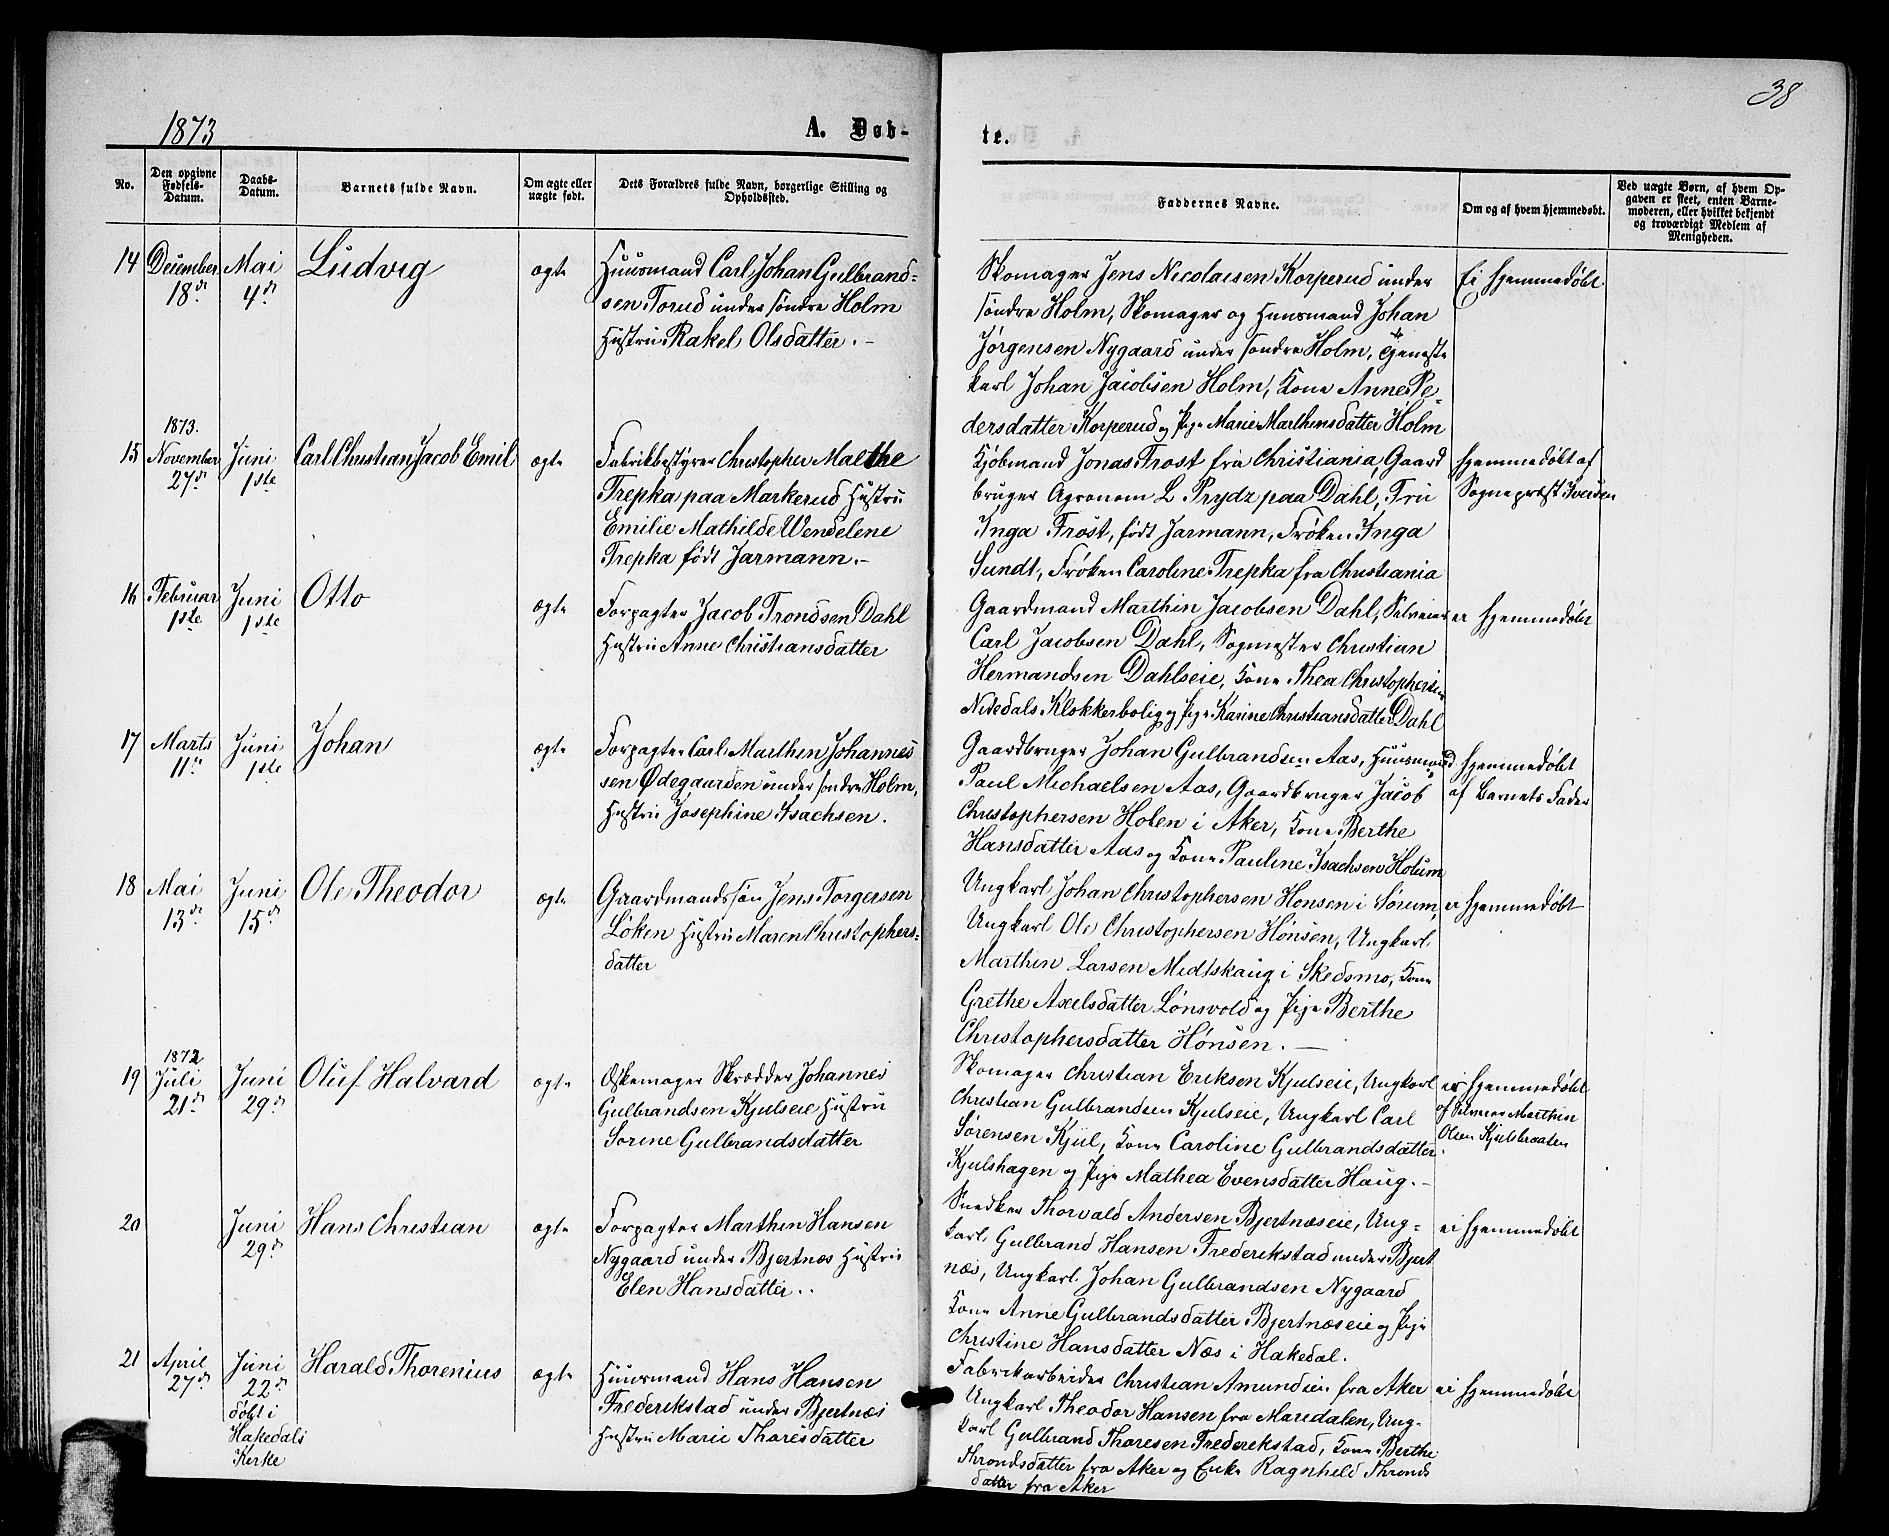 38
1873
A. Døb-
te.
No.
Den opgivne Fødsels-Datum.
Daabs-Datum.
Barnets fulde Navn.
Om ægte eller uægte født.
Dets Forældres fulde Navn, borgerlige Stilling og Opholdssted.
Faddernes Navne.
Om og af hvem hjemmedøbt.
Ved uægte Børn, af hvem Op-
gaven er skeet, enten Barne-
moderen, eller hvilket bekjendt
og troværdigt Medlem af
Menigheden.
14 December 18de Mai 4de Ludvig ægte
Huusmand Carl Johan Gulbrand-
sen Torud under søndre Holm
Hustru Rakel Olsdatter.
Skomager Jens Nicolaisen Korperud under
søndre Holm, Skomager og Huusmand Johan
Jørgensen Nygaard under søndre Holm, Tjeneste
karl Johan Jacobsen Holm, Kone Anne Pe-
dersdatter Korperud og Pige Marie Marthinsdatter Holm
Ei hjemmedøbt
15 1873. November 27de Juni 1ste Carl Christian Jacob Emil ægte
Fabrikbestyrer Christopher Malthe
Trepka paa Markerud Hustru
Emilie Mathilde Wendelene
Trepka født Jarmann.
Kjøbmand Jonas Frost fra Christiania, Gaard
bruger Agronom L Prydz paa Dahl, Fru
Inga Frost, født Jarmann, Frøken Inga
Sundt, Frøken Caroline Trepka fra Christiania
hjemmedøbt af
Sognepræst Iversen
16 Februar 1ste Juni 1ste Otto ægte
Forpagter Jacob Trondsen Dahl
Hustru Anne Christiansdatter
Gaardmand Marthin Jacobsen Dahl, Selveier
Carl Jacobsen Dahl, Sagmester Christian
Hermandsen Dahlseie, Kone Thea Christophersen
Nitedals Klokkerbolig og Pige Karine Christiansdatter Dahl
ei hjemmedøbt
17 Marts 11te Juni 1ste Johan ægte
Forpagter Carl Marthin Johannes
sen Ødegaarden under søndre Holm,
Hustru Josephine Isachsen.
Gaardbruger Johan Gulbrandsen Aas, Huusmand
Paul Michaelsen Aas, Gaardbruger Jacob
Christophersen Holen i Aker, Kone Berthe
Hansdatter Aas og Kone Pauline Isachsen Holum
hjemmedøbt
af Barnets Fader
18 Mai 13de Juni 15de Ole Theodor ægte
Gaardmandssøn Jens Torgersen
Løken Hustru Maren Christophers-
datter
Ungkarl Johan Christophersen Hønsen i Sørum,
Ungkarl Ole Christophersen Hønsen, Ungkarl
Marthin Larsen Midtskaug i Skedsmo, Kone
Grethe Axelsdatter Lønsvold og Pige Berthe
Christophersdatter Hønsen.
ei hjemmedøbt
19 1872 Juli 21de Juni 29de Oluf Halvard ægte
Skrædder Johannes
Gulbrandsen Kjulseie Hustru
Sorine Gulbrandsdatter
Skomager Christian Eriksen Kjulseie, Ungkarl
Christian Gulbrandsen Kjulseie, Ungkarl Carl
Sørensen Kjul, Kone Caroline Gulbrandsdatter
Kjulshagen og Pige Mathea Evensdatter Haug.
hjemmedøbt
af Selveier Marthin
Olsen Kjulsbraaten
20 Juni 29de Hans Christian ægte
Forpagter Marthin Hansen
Nygaard under Bjertnæs Hustru
Elen Hansdatter.
Snedker Thorvald Andersen Bjertnæseie, Ung-
karl Gulbrand Hansen Frederikstad under Bjert
næs, Ungkarl Johan Gulbrandsen Nygaard
Kone Anne Gulbrandsdatter Bjertnæseie og Pige
Christine Hansdatter Næs i Hakedal.
ei hjemmedøbt
21 April 27de Juni 22de
døbt i
Hakedals
Kirke
Harald Thorenius ægte
Huusmand Hans Hansen
Frederikstad under Bjertnæs
Hustru Marie Thoresdatter
Fabrikarbeider Christian Amundsen fra Aker
Ungkarl Theodor Hansen fra Maridalen, Ung-
karl Gulbrand Thoresen Frederikstad, Kone Berthe
Throndsdatter fra Aker og Enke Ragnhild Thronds
datter fra Aker
ei hjemmedøbt